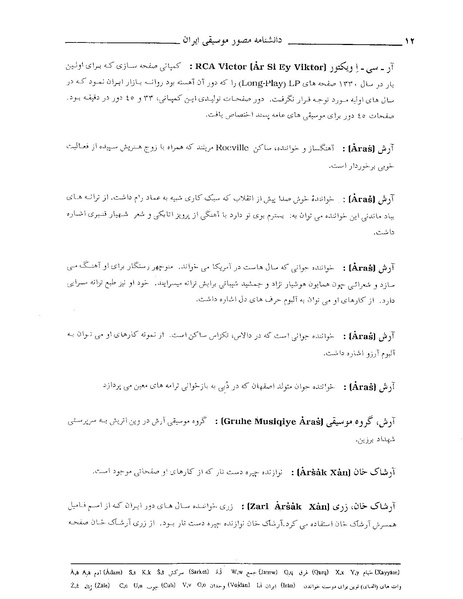 ١٢ دانشنامه مصور موسیقی ایران
آر ـ سی ـ اِ ویکتور RCA Victor [Âr Si Ey Viktor] : کمپانی صفحه سازی که برای اولین
بار در سال ١٣٣٠ صفحه های LP (Long-Play) را که دور آن آهسته بود روانه بازار ایران نمود که در
سال های اولیه مورد توجه قرار نگرفت. دور صفحات تولیدی این کمپانی، ٣٣ و ٤٥ دور در دقیقه بود.
صفحات ٤٥ دور برای موسیقی های عامه پسند اختصاص یافت.
آرش [Âraš] : آهنگساز و خواننده، ساکن مریلند که همراه با زوج هنریش سپیده از فعالیت
خوبی برخوردار است.
آرش [Âraš] : خوانندهٔ خوش صدا پیش از انقلاب که سبک کاری شبیه به عماد رام داشت. از ترانه های
بیاد ماندنی این خواننده می توان به: بسترم بوی تو دارد با آهنگی از پرویز اتابکی و شعر شهیار قنبری اشاره
داشت.
آرش [Âraš] : خواننده جوانی که سال هاست در آمریکا می خواند. منوچهر رستگار برای او آهنگ می
سازد و شعرائی چون همایون هوشیار نژاد و جمشید شیبانی برایش ترانه میسرایند. خود او نیز طبع ترانه سرایی
دارد. از کارهای او می توان به آلبوم حرف های دل اشاره داشت.
آرش [Âraš] : خواننده جوانی است که در دالاس، تکزاس ساکن است. از نمونه کارهای او می توان به
آلبوم آرزو اشاره داشت.
آرش [Âraš] : خواننده جوان متولد اصفهان که در دُبی به بازخوانی ترانه های معین می پردازد
آرش، گروه موسیقی [Gruhe Musiqiye Âraš] : گروه موسیقی آرش در وین اتریش به سرپرستی
شهداد برزین.
آرشاک خان [Âršâk Xân] : نوازنده چیره دست تار که از کارهای او صفحاتی موجود است.
آرشاک خان، زری [Zari Âršâk Xân] : زری خواننده سال های دور ایران که از اسم فامیل
همسرش آرشاک خان استفاده می کرد. آرشاک خان نوازنده چیره دست تار بود. از زری آرشاک خان صفحه